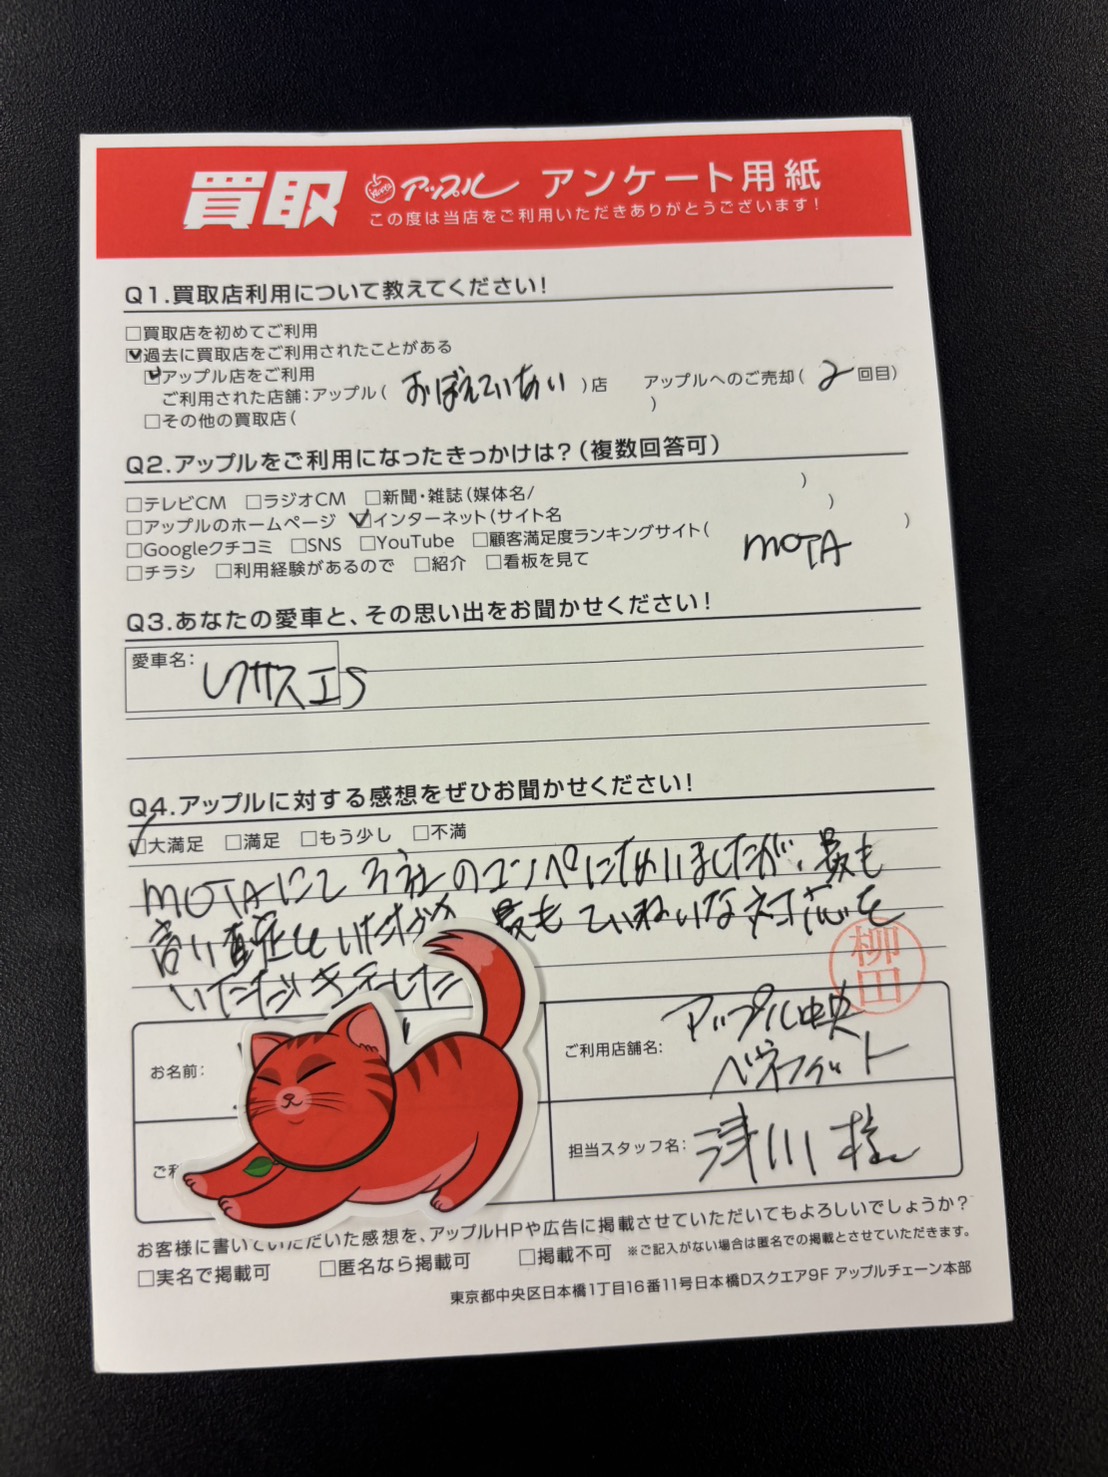 買取 アップル アンケート用紙
この度は当店をご利用いただきありがとうございます!
Q1.買取店利用について教えてください!
□買取店を初めてご利用
☑過去に買取店をご利用されたことがある
☑アップル店をご利用
ご利用された店舗:アップル( おぼえていない )店 アップルへのご売却( 2 回目)
□その他の買取店( )
Q2.アップルをご利用になったきっかけは?(複数回答可)
□テレビCM □ラジオCM □新聞・雑誌(媒体名/ )
□アップルのホームページ ☑インターネット(サイト名 )
□Googleクチコミ □SNS □YouTube □顧客満足度ランキングサイト( )
MOTA
□チラシ □利用経験があるので □紹介 □看板を見て
Q3.あなたの愛車と、その思い出をお聞かせください!
愛車名: レクサスES
Q4.アップルに対する感想をぜひお聞かせください!
☑大満足 □満足 □もう少し □不満
MOTAにて3社のコンペになりましたが、最も
高い査定 いただ 最もていねいな対応を
いただきました
柳田
お名前:
ご利用店舗名: アップル中央
ベネフィット
ご利
担当スタッフ名: 浅川様
お客様に書いていただいた感想を、アップルHPや広告に掲載させていただいてもよろしいでしょうか?
□実名で掲載可 □匿名なら掲載可 □掲載不可 ※ご記入がない場合は匿名での掲載とさせていただきます。
東京都中央区日本橋1丁目16番11号日本橋Dスクエア9F アップルチェーン本部